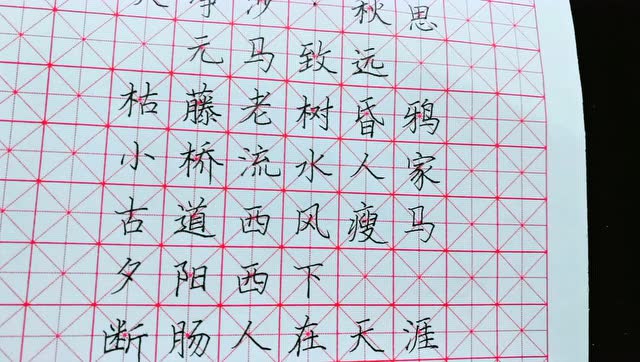 天净沙 秋思
元马致远
枯藤老树昏鸦
小桥流水人家
古道西风瘦马
夕阳西下
断肠人在天涯